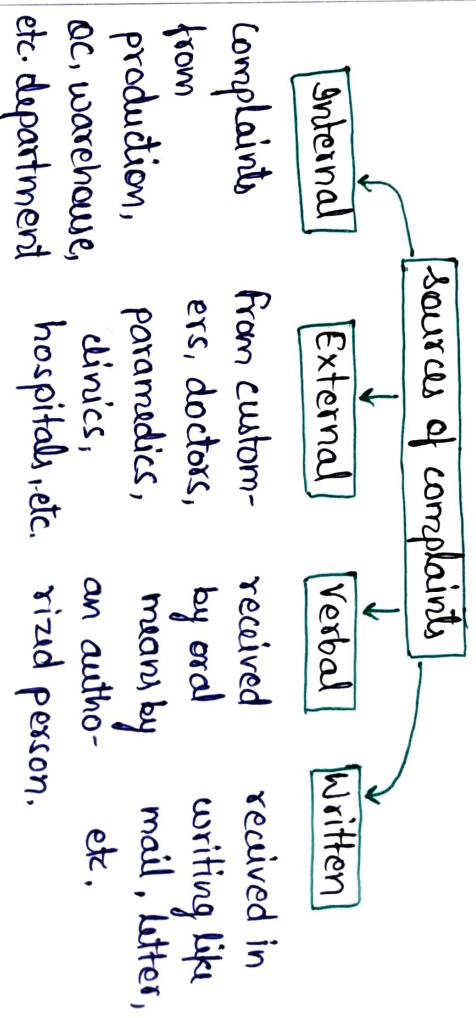 sources of complaints
Internal
complaints
from
production,
QC, warehouse,
etc. department
External
from custom-
ers, doctors,
paramedics,
clinics,
hospitals, etc.
Verbal
received
by oral
means by
an autho-
rized person.
Written
received in
writing like
mail, letter,
etc.